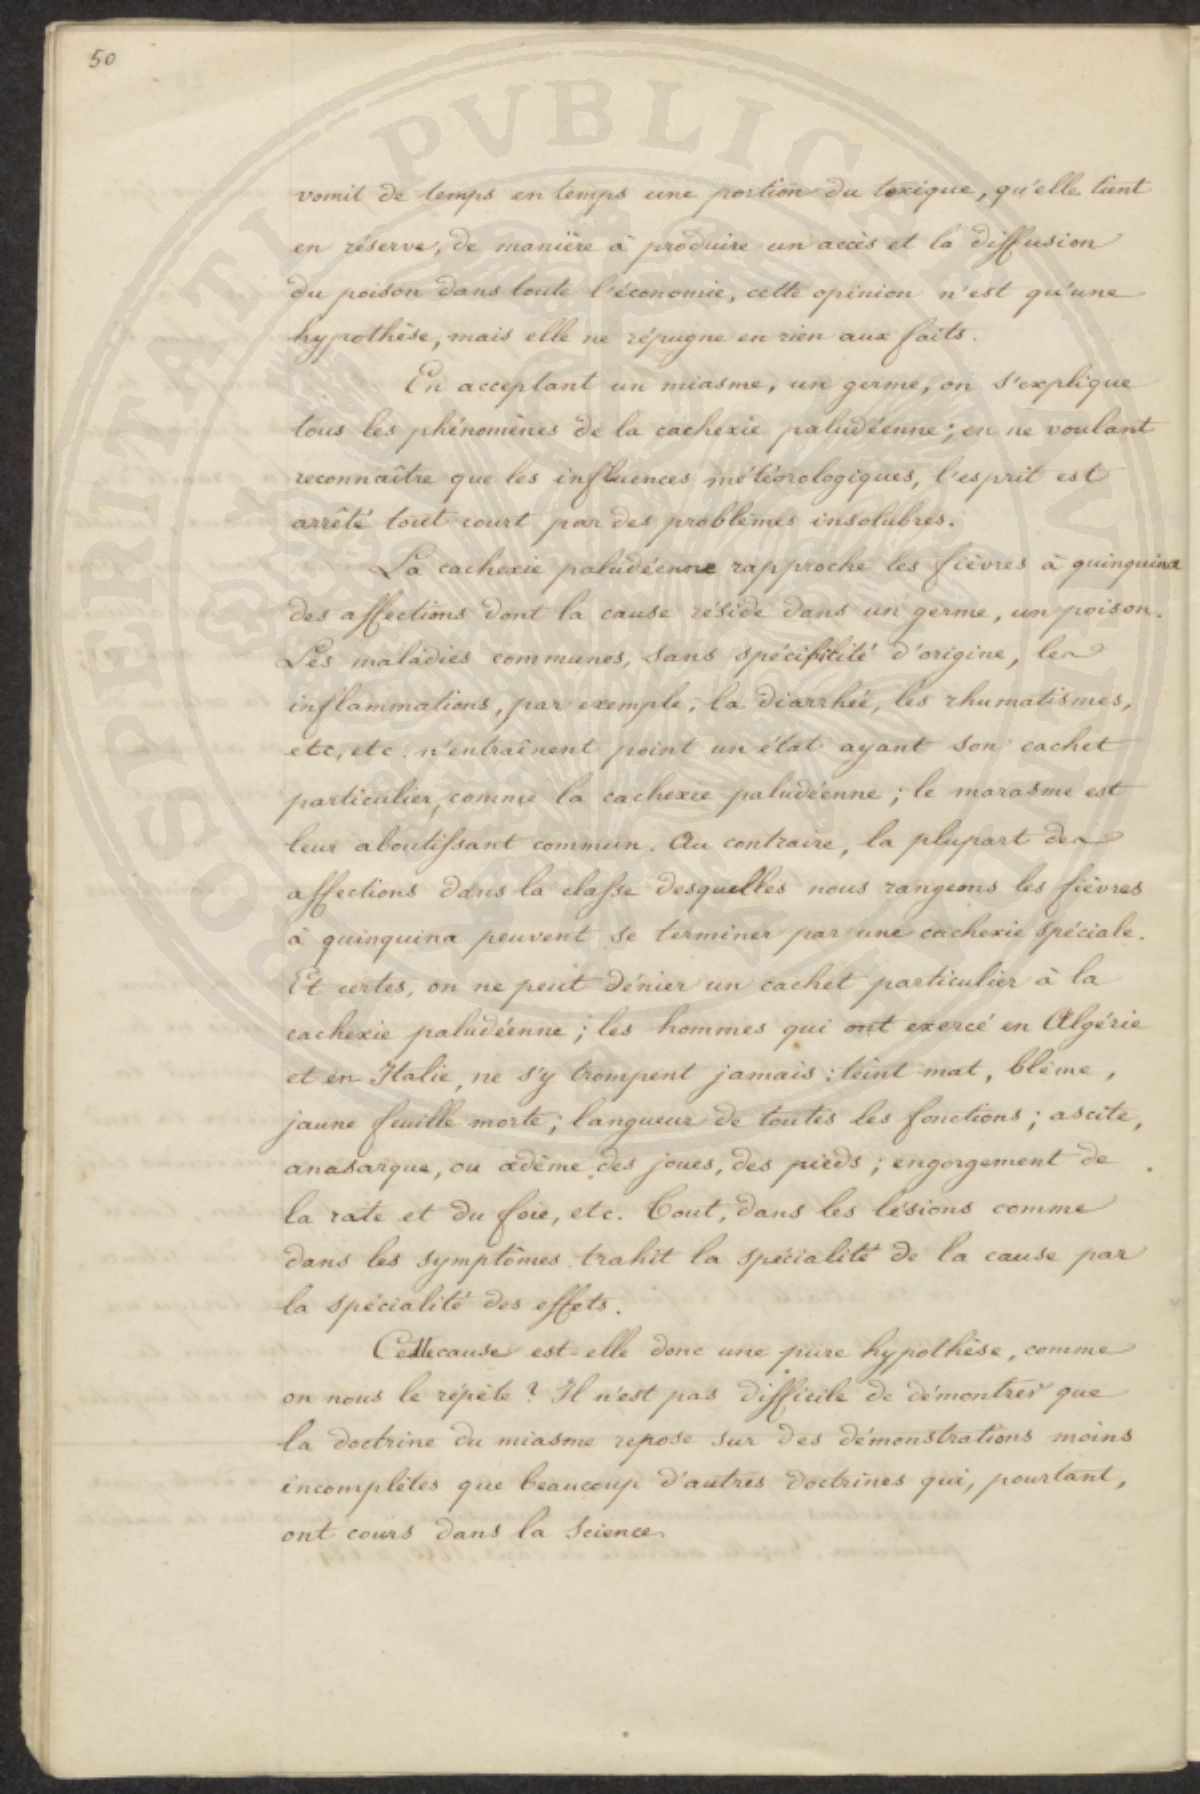 50
vomit de temps en temps une portion du toxique, qu'elle tient
en réserve, de manière à produire un accès et la diffusion
du poison dans toute l'économie, cette opinion n'est qu'une
hypothèse, mais elle ne répugne en rien aux faits.
En acceptant un miasme, un germe, on s'explique
tous les phénomènes de la cachexie paludéenne ; en ne voulant
reconnaître que les influences météorologiques, l'esprit est
arrêté tout court par des problèmes insolubres.
La cachexie paludéenne rapproche les fièvres à quinquina
des affections dont la cause réside dans un germe, un poison.
Les maladies communes, sans spécificité d'origine, les
inflammations, par exemple, la diarrhée, les rhumatismes,
etc, etc. n'entraînent point un état ayant son cachet
particulier, comme la cachexie paludéenne ; le marasme est
leur aboutissant commun. Au contraire, la plupart des
affections dans la classe desquelles nous rangeons les fièvres
à quinquina peuvent se terminer par une cachexie spéciale.
Et certes, on ne peut dénier un cachet particulier à la
cachexie paludéenne ; les hommes qui ont exercé en Algérie
et en Italie, ne s'y trompent jamais : teint mat, blême,
jaune feuille morte ; langueur de toutes les fonctions ; ascite,
anasarque, ou œdème des joues, des pieds ; engorgement de
la rate et du foie, etc. Tout, dans les lésions comme
dans les symptômes trahit la spécialité de la cause par
la spécialité des effets.
Cette cause est-elle donc une pure hypothèse, comme
on nous le répète ? Il n'est pas difficile de démontrer que
la doctrine du miasme repose sur des démonstrations moins
incomplètes que beaucoup d'autres doctrines qui, pourtant,
ont cours dans la science.